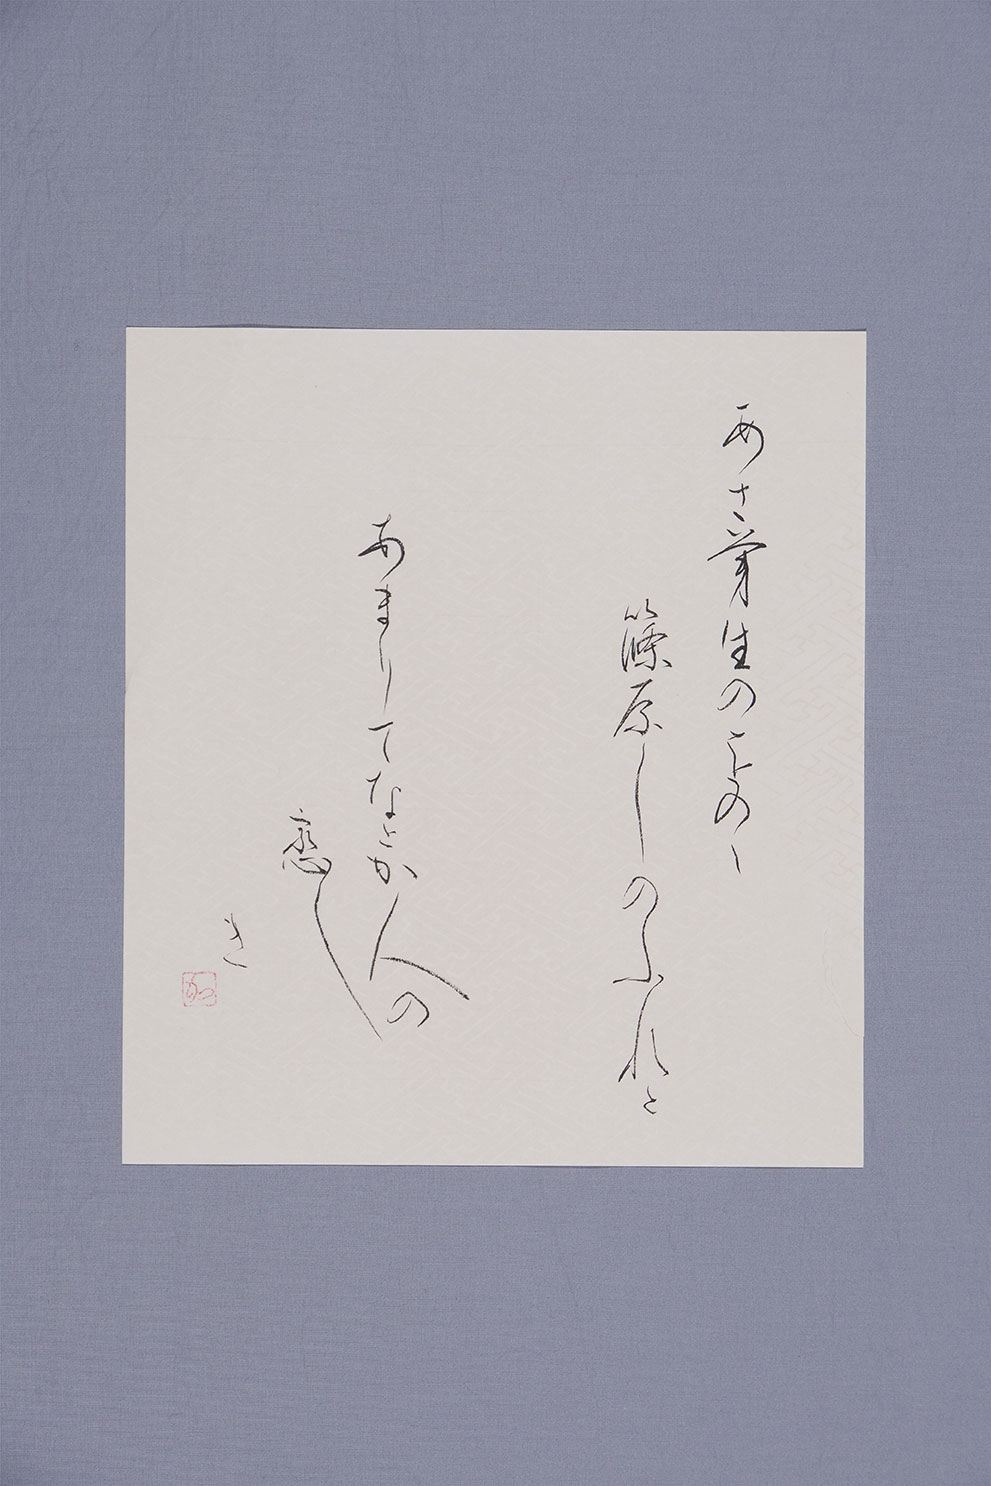 あさ茅生のをのゝ
篠原しのふれと
あまりてなとか人の
恋し
き